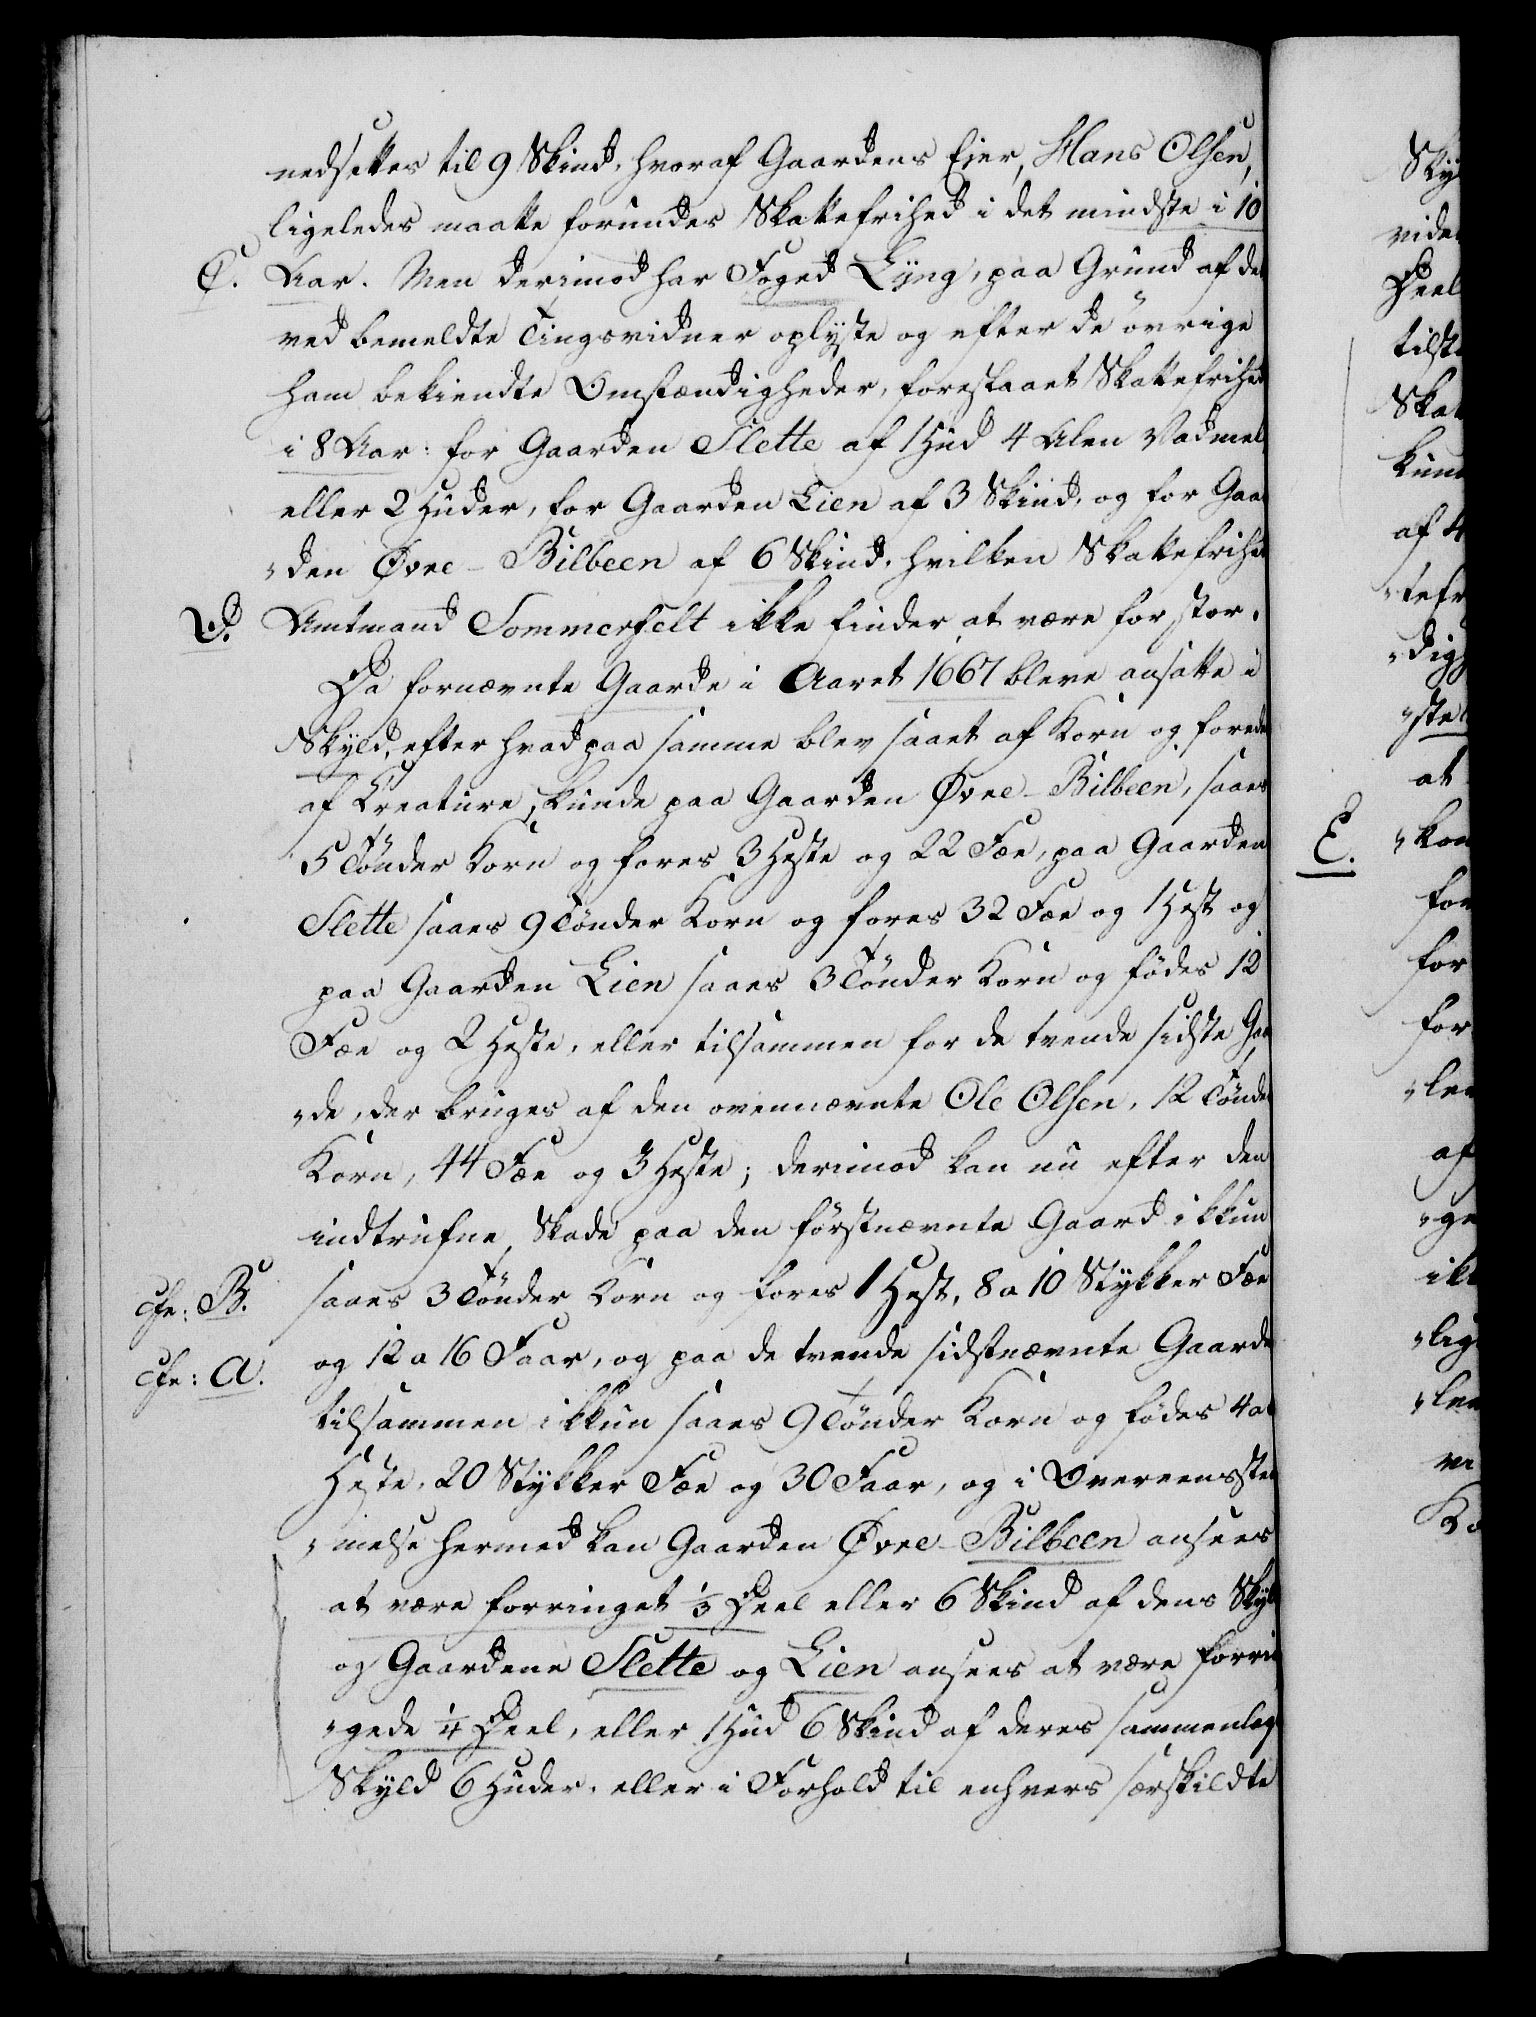 nedsættes til 9 Skind, hvoraf Gaardens Eier, Hans Olsen,
ligeledes maatte forundes Skattefrihed i det mindste i 10
C. Aar. Men derimod har Foged Lÿng, paa Grund af det
ved bemeldte Tingsvidner oplyste og efter de øvrige
ham bekiendte Omstændigheder, foreslaaet Skattefrihed
i 8 Aar: for Gaarden Slette af 1 Hud 4 Alen Vadmel
eller 2 Huder, for Gaarden Lien af 3 Skind, og for Gaar
"den Øvre-Bilbeen af 6 Skind, hvilken Skattefrihed
D. Amtmand Sommerfelt ikke finder at være for stor.
Da fornævnte Gaarde i Aaret 1667 bleve ansatte i
Skyld, efter hvad paa samme blev saaet af Korn og foredes
af Kreature, kunde paa Gaarden Øvre-Bilbeen, saaes
5 Tönder Korn og fores 3 Heste og 22 Fæe, paa Gaarden
Slette saaes 9 Tönder Korn og fores 32 Fæe og 1 Hest og
paa Gaarden Lien saaes 3 Tönder Korn og födes 12
Fæe og 2 Heste, eller tilsammen for de tvende sidste Gaar
"de, der bruges af den ovennævnte Ole Olsen, 12 Tönder
Korn, 44 Fæe og 3 Heste; derimod kan nu efter den
indtrufne Skade paa den förstnævnte Gaard ikkun
cfr: B. saaes 3 Tönder Korn og fores 1 Hest, 8 a 10 Stykker Fæe
cfr: A. og 12 a 16 Faar, og paa de tvende sidstnævnte Gaarde
tilsammen ikkun saaes 9 Tönder Korn og födes 4 a
Heste, 20 Stykker Fæe og 30 Faar, og i Overeensstem
"melse hermed kan Gaarden Øvre-Bilbeen ansees
at være forringet 1/3 Deel eller 6 Skind af dens Skyld
og Gaardene Slette og Lien ansees at være forrin
"gede 1/4 Deel, eller 1 Hud 6 Skind af deres sammenlagte
Skyld 6 Huder, eller i Forhold til enhvers særskildte
Deel
tilst
Skat
af 4
"tefr
"dig
"ste
at
E. "kom
for
for
for
"len
af
"ge
ikk
"lig